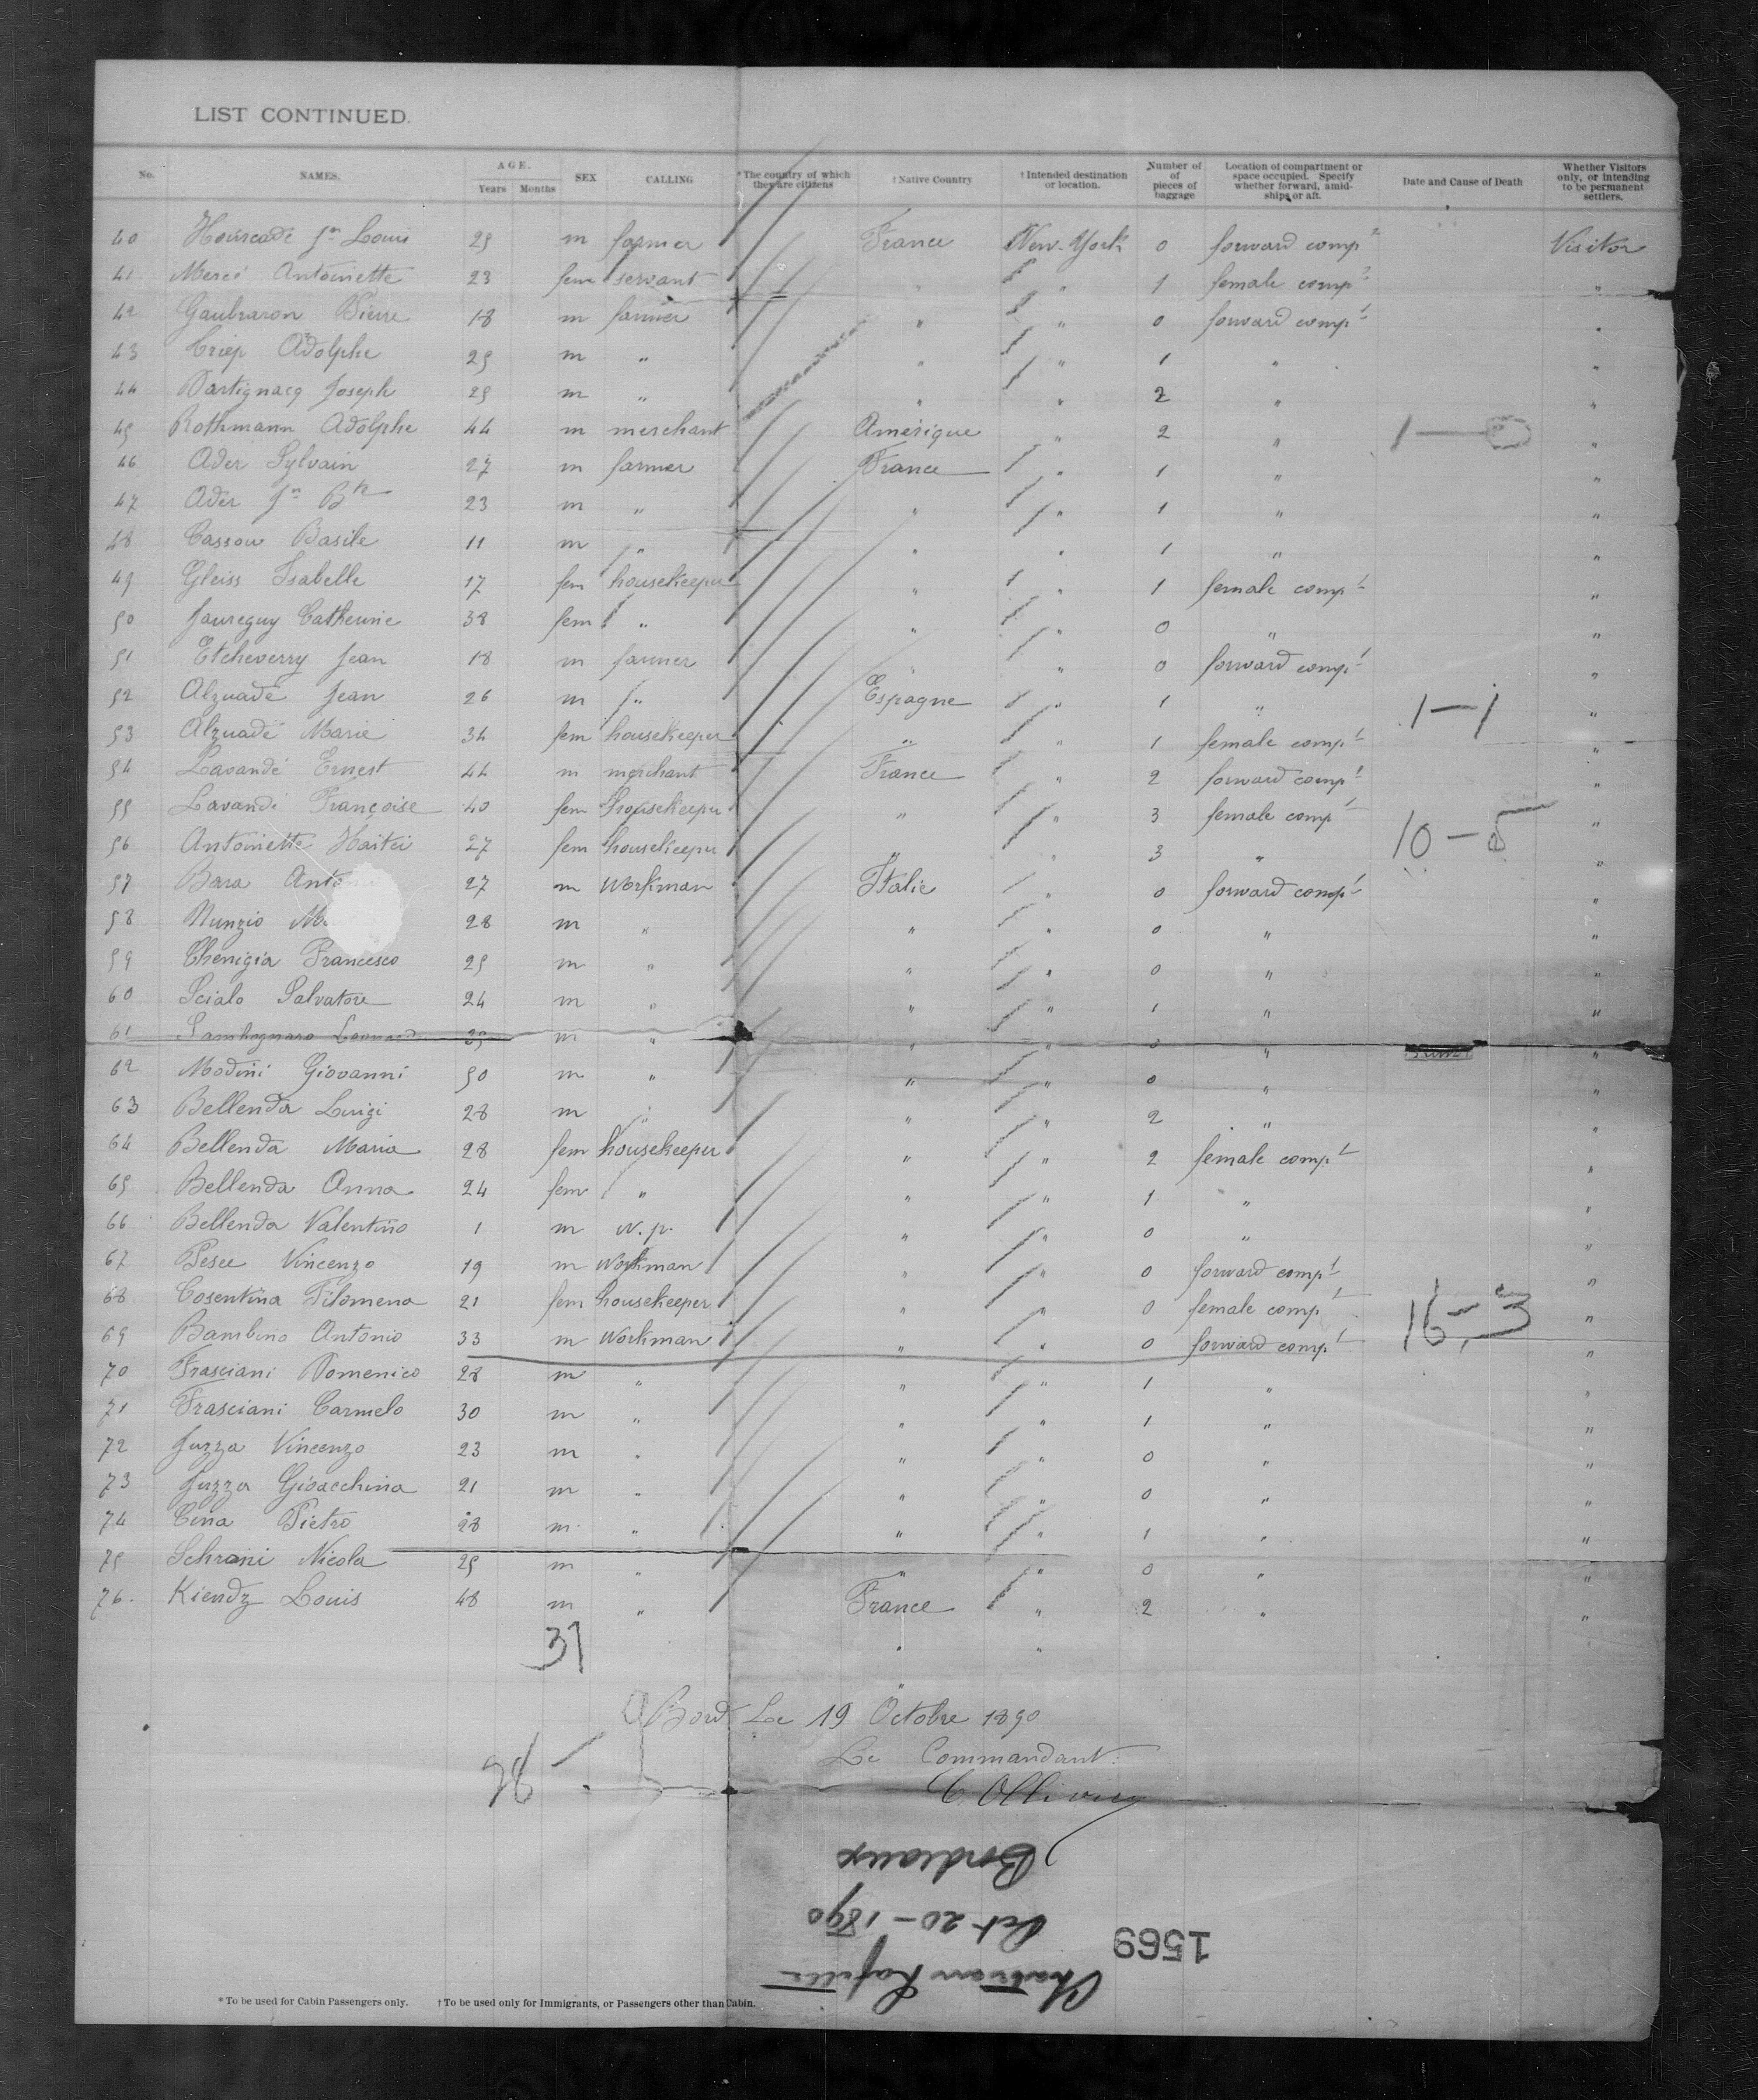 LIST CONTINUED.
No. NAMES. AGE. Years Months SEX CALLING *The country of which they are citizens †Native Country †Intended destination or location. Number of pieces of baggage Location of compartment or space occupied. Specify whether forward, amidships or aft. Date and Cause of Death Whether Visitors only, or intending to be permanent settlers.
40 Hourcade Jn Louis 25 m farmer France New-York 0 forward compt Visitor
41 Mercé Antoinette 23 fem servant " " 1 female compt "
42 Gaubraron Pierre 18 m farmer " " 0 forward compt "
43 Criep Adolphe 25 m " " " 1 " "
44 Dartignacq Joseph 25 m " " " 2 " "
45 Rothmann Adolphe 44 m merchant Amérique " 2 " 1—0 "
46 Ader Sylvain 27 m farmer France " 1 " "
47 Ader Jn Bte 23 m " " " 1 " "
48 Cassou Basile 11 m " " " 1 " "
49 Gleiss Isabelle 17 fem housekeeper " " 1 female compt "
50 Jaureguy Catherine 38 fem " " " 0 " "
51 Etcheverry Jean 18 m farmer " " 0 forward compt "
52 Alzuadé Jean 26 m " Espagne " 1 " 1—1 "
53 Alzuadé Marie 34 fem housekeeper " " 1 female compt "
54 Lavandé Ernest 44 m merchant France " 2 forward compt "
55 Lavandé Françoise 40 fem housekeeper " " 3 female compt "
56 Antoinette Haitci 27 fem housekeeper " " 3 " 10—5 "
57 Bara 27 m workman Italie " 0 forward compt "
58 Nunzio 28 m " " " 0 " "
59 Chenigia Francesco 25 m " " " 0 " "
60 Scialo Salvatore 24 m " " " 1 " "
61 m " " " " "
62 Modini Giovanni 50 m " " " 0 " "
63 Bellenda Luigi 28 m " " " 2 " "
64 Bellenda Maria 28 fem housekeeper " " 2 female compt "
65 Bellenda Anna 24 fem " " " 1 " "
66 Bellenda Valentino 1 m N.p. " " 0 " "
67 Pesce Vincenzo 19 m workman " " 0 forward compt "
68 Cosentina Filomena 21 fem housekeeper " " 0 female compt 16—3 "
69 Bambino Antonio 33 m workman " " 0 forward compt "
70 Frasciani Domenico 28 m " " " 1 " "
71 Frasciani Carmelo 30 m " " " 1 " "
72 Juzza Vincenzo 23 m " " " 0 " "
73 Juzza Gioacchina 21 m " " " 0 " "
74 Cina Pietro 28 m " " " 1 " "
75 Schrani Nicola 25 m " " " 0 " "
76. Kiendz Louis 48 m " France " 2 " "
37
" "
a Bord Le 19 Octobre 1890
Le Commandant:
98
C. Ollivier
Bordeaux
Oct 20—1890
1569
Chateau Lafitte
*To be used for Cabin Passengers only. †To be used only for Immigrants, or Passengers other than Cabin.